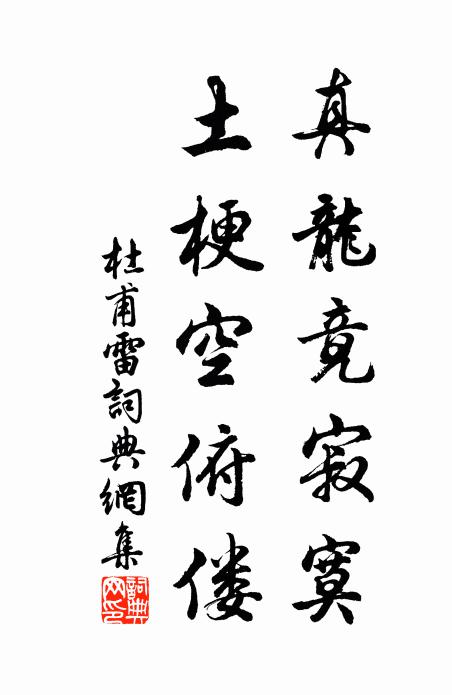 真龍竟寂寞
土梗空俯僂
杜甫雷詞典網集
詞典網印